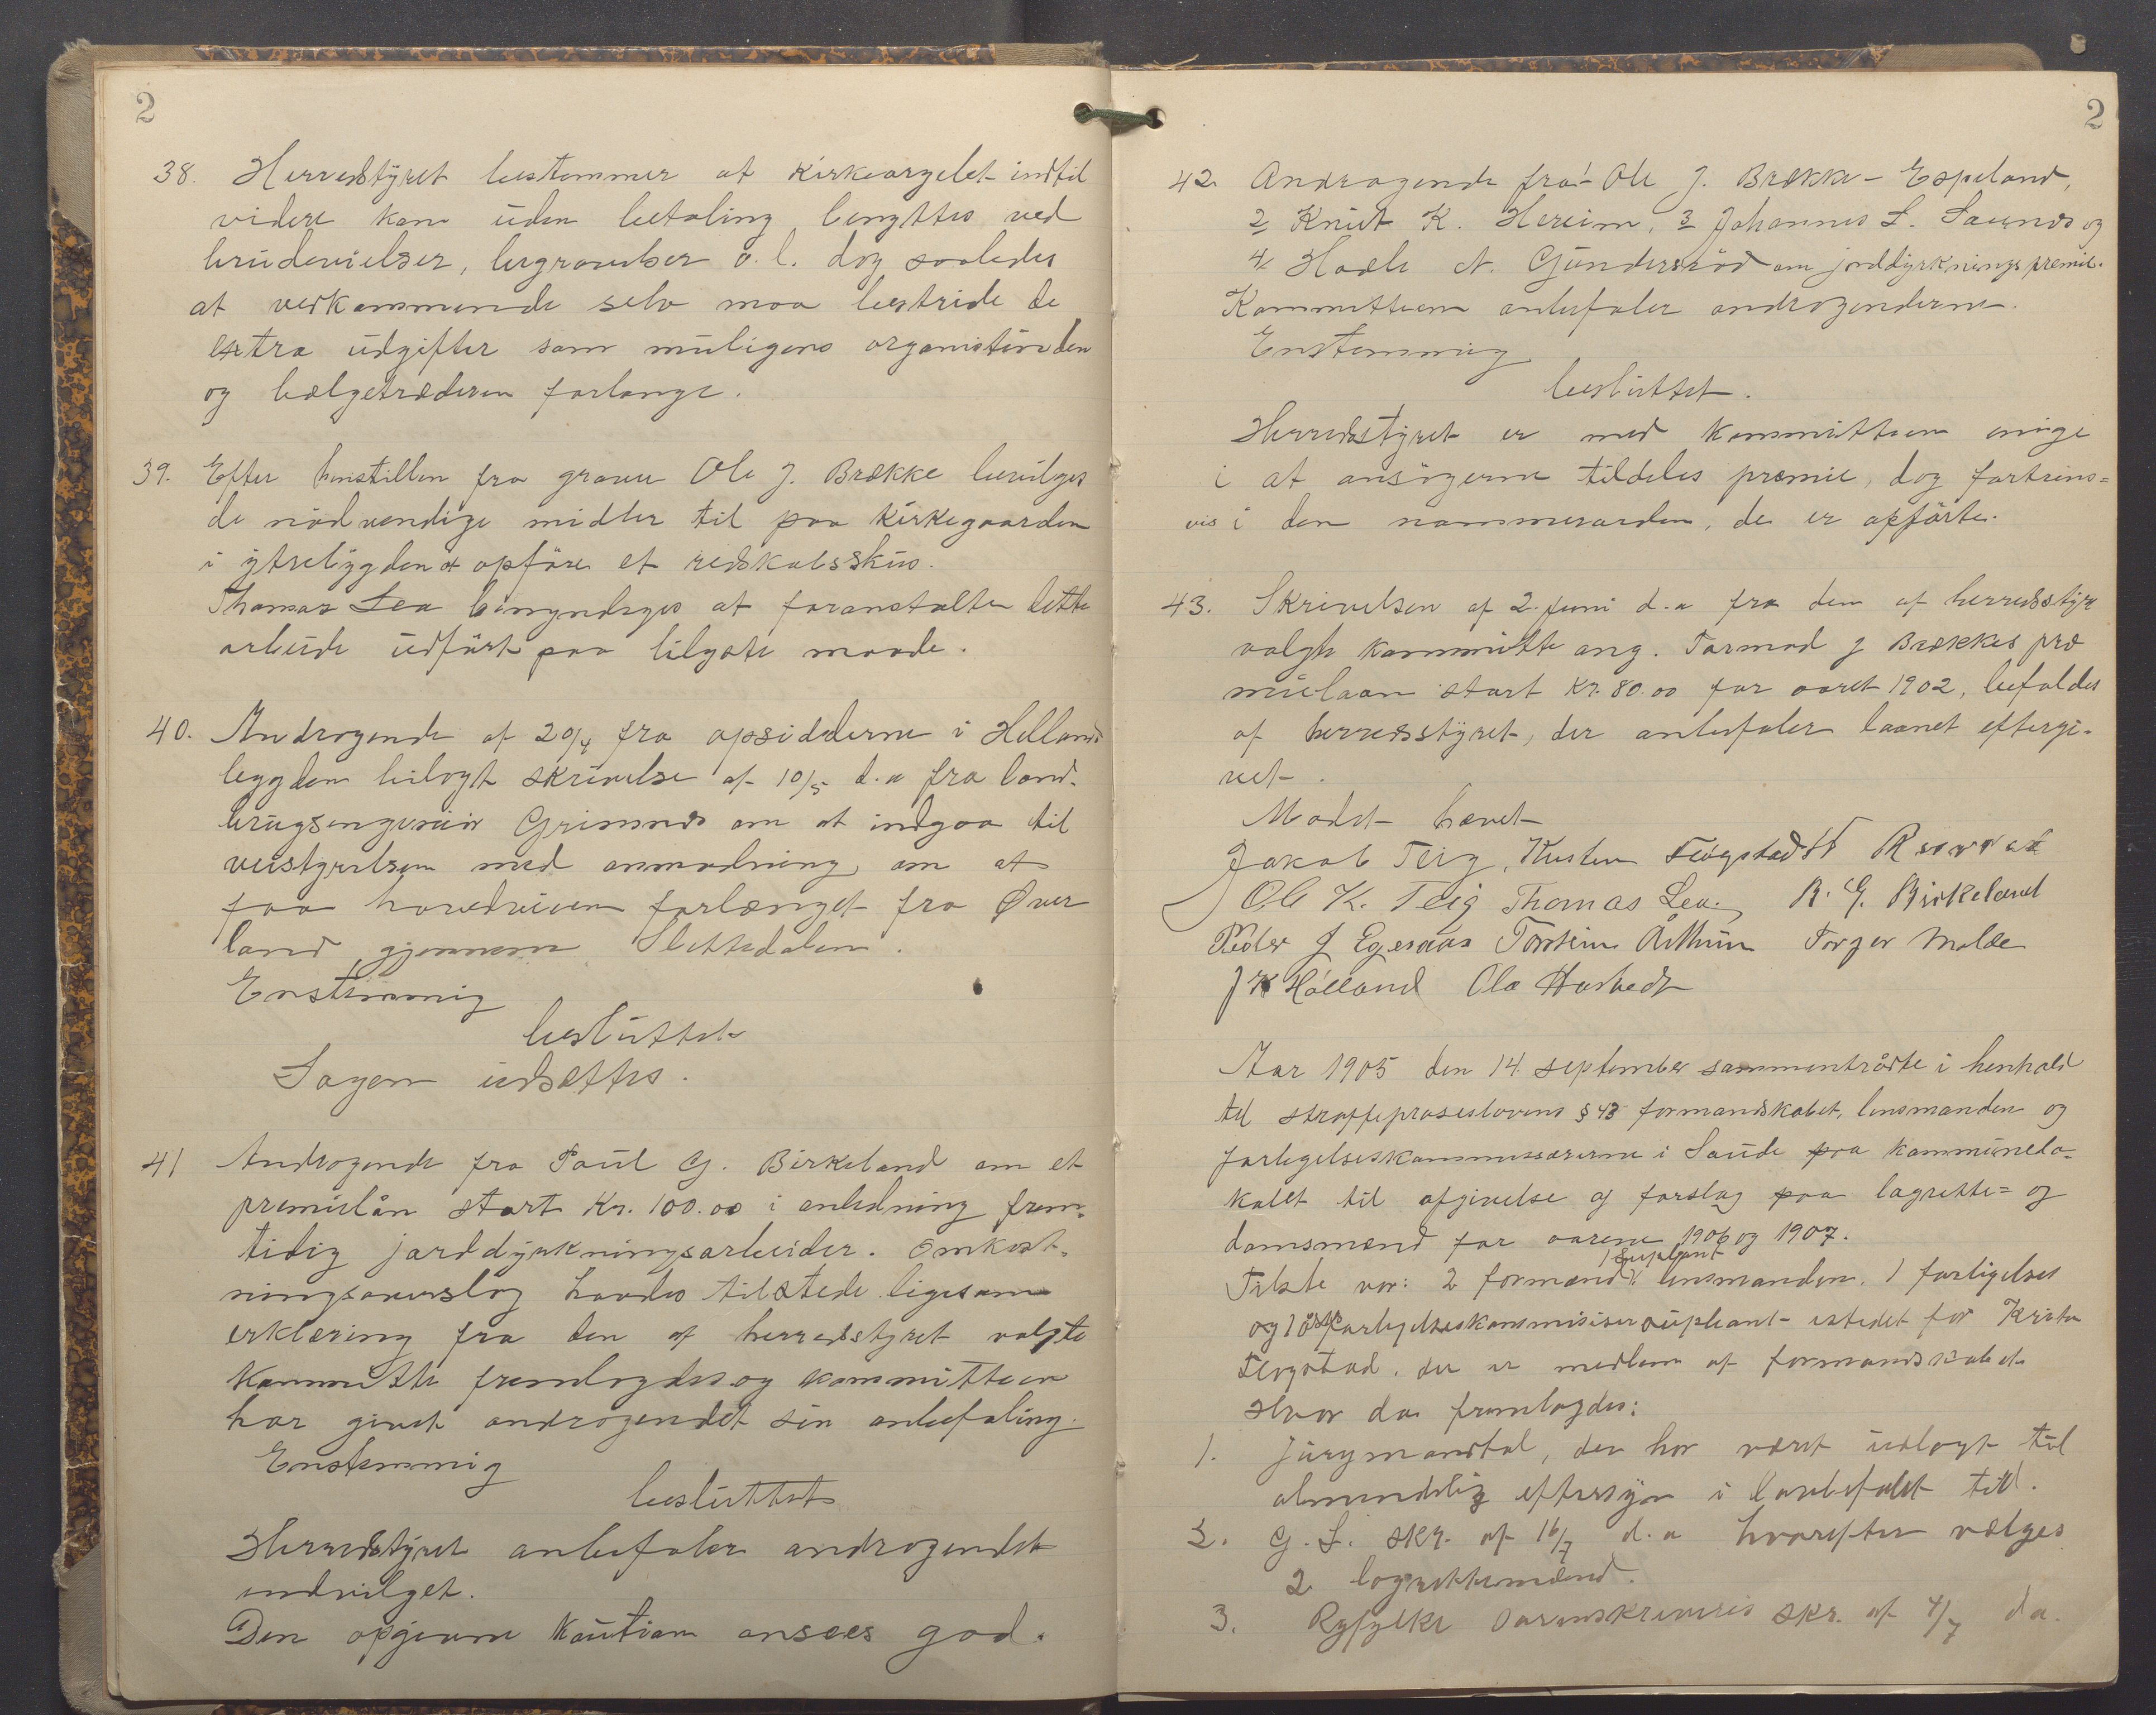 2
38. Herredstyret bestemmer at kirkeorgelet indtil
videre kan uden betaling benyttes ved
brudevielser, begravelser o.l. dog saaledes
at vedkommende selv maa bestride de
extra udgifter som muligens organisten den
og bælgetræderen forlange.
39. Efter henstillen fra graver Ole J. Brække bevilges
de nödvendige midler til paa kirkegaarden
i ytrebygden at opföre et redskabsskur.
Thomas Lea bemyndiges at foranstalte dette
arbeide udfört paa biligste maade.
40. Andragende af 20/4 fra opsidderne i Hellands
bygden bilagt skrivelse af 10/5 d.a fra land-
brugsingeniör Grimnes om at indgaa til
veistyrelsen med anmodning om at
faa hovedveien forlænget fra Øver
land gjennem Slettedalen.
Enstemmig
besluttet
Sagen udsættes.
41 Andragende fra Paul G. Birkeland om et
premielån stort Kr. 100.00 i anledning frem-
tidig jorddyrkningsarbeider. Omkost-
ningsoverslag havdes tilstede ligesom
erklæring fra den af herredstyret valgte
kommitte fremlagdes og kommitteen
har givet andragendet sin anbefaling.
Enstemmig
besluttet
Herredstyret anbefaler andragendet
indvilget.
Den opgivne kaution ansees god.
2
42. Andragende fra 1 Ole J. Brække - Espeland,
2 Knut K. Hereim, 3 Johannes L. Saunes og
4 Hadle N. Gunderröd om jorddyrkningspremie.
Kommitteen anbefaler andragenderne.
Enstemmig
besluttet.
Herredstyret er med kommitteen enige
i at ansögerne tildeles premie, dog fortrins=
vis i den nummerorden, de er opförte.
43. Skrivelsen af 2. juni d.a fra den af herredsstyre
valgte kommitte ang. Tormod J Brækkes præ
mielaan stort Kr. 80.00 for aaret 1902, befaldes
af herredsstyret, der anbefaler laanet eftergi-
vet.
Mødet hævet
Jakob Teig, Kristen Fløgstad
Ole K. Teig Thomas Lea. R. G. Birkeland
Peder J Egesaas Torstein Årthun Torger Molde
J K Hålland Ola Hustvedt
Aar 1905 den 14. september sammentrådte i henhold
til straffeproseslovens § 43 formandskabet, lensmanden og
forligelseskommissærerne i Saude paa kommunelo-
kalet til afgivelse af forslag paa lagrette= og
domsmænd for aarene 1906 og 1907.
1 supleant
Tilste var: 2 formænd, lensmanden. 1 forligelses
og 1 forligelseskommisiær supleant istedet for Kristen
Fløgstad, der er medlem af formandskabet.
Hvor da fremlagdes:
1. Jurymandtal, der har været udlagt til
almindelig eftersyn i lovbefalt tid.
2. G. L. skr. af 16/7 d.a hvorefter vælges
2 lagrettemænd.
3. Ryfylke Sorenskriveris skr. af 4/7 d.a.